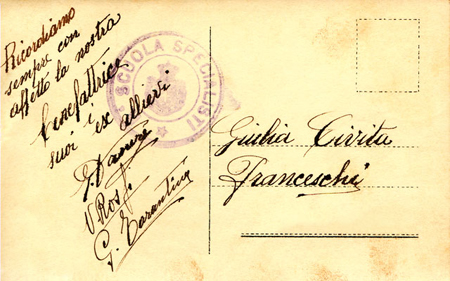 Ricordiamo
sempre con
affetto la nostra
benefattrice
i
suoi ex allievi
V. Rossi
G. Tarantino
SCUOLA SPECIALISTI
Giulia Civita
Franceschi